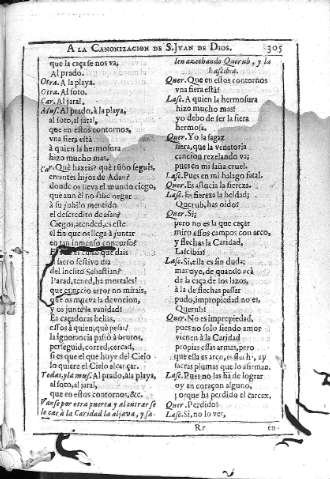 A LA CANONIZACION DE S. JVAN DE DIOS. 305
que la caça se nos va,
Al prado.
Otra. A la playa.
Otra. Al soto.
Car. Al jaral,
Al prado, à la playa,
al soto, al jaral,
que en estos contornos,
vna fiera està
à quien la hermosura
hizo mucho mas.
Car. Què hazeis? què ruìdo seguìs,
errantes hijos de Adan?
donde os lleva el mundo ciego,
que aun èl no sabe negar
à su jubilo
el descredito de
Ciegos, atended, es este
el fin que os llega à juntar
en tan inmenso concurso?
que dais
à fiero festivo dia
del inclito Sebastian?
Parad, tened, ha mortales!
que es necio error no mirais,
que os mueva la devocion,
y os junte la vanidad?
Ea caçadoras bellas,
essos à quien, què pesar!
la ignorancia passò à brutos,
perseguid, corred, cercad,
si es que el que huye del Cielo
lo quiere el Cielo alcançar.
Todas, y la mus. Al prado, à la playa,
al soto, al jaral,
que en estos contornos, &c.
Vanse por otra puerta y al entrarse
la Caridad la aljava, y sa-
len Querub, y la
Lascivia.
Quer. Que en estos contornos
vna fiera està!
Lasc. A quien la hermosura
hizo mucho mas!
yo debo de ser la fiera
hermosa.
Quer. Yo la sagaz
fiera, que la venatoria
cancion revelando va;
pues en mi saña cruel.
Lasc. Pues en mi halago fatal.
Quer. Es astucia la fiereza.
Lasc. Es fiereza la beldad;
Querub, has oìdos?
Quer. Sì;
pero no es la que caçar
miro essos campos con arco,
y flechas la Caridad,
Lascivia?
Lasc. Sì, ella es sin duda;
mas oyo, de quando acà
de la caça de los lazos,
à la de flechas passar
pudo, impropriedad no es,
Querub?
Quer. No es impropriedad,
pues no solo siendo amor
vienen à la Caridad
proprias estas armas, pero
que ella es arco,
sacras plumas que lo afirman.
Lasc. Pues no las ha de lograr
oy en coraçon alguno,
porque ha perdido el carcax.
Quer. Perdido?
Lasc. Sì, no lo ves,
Rr
en-